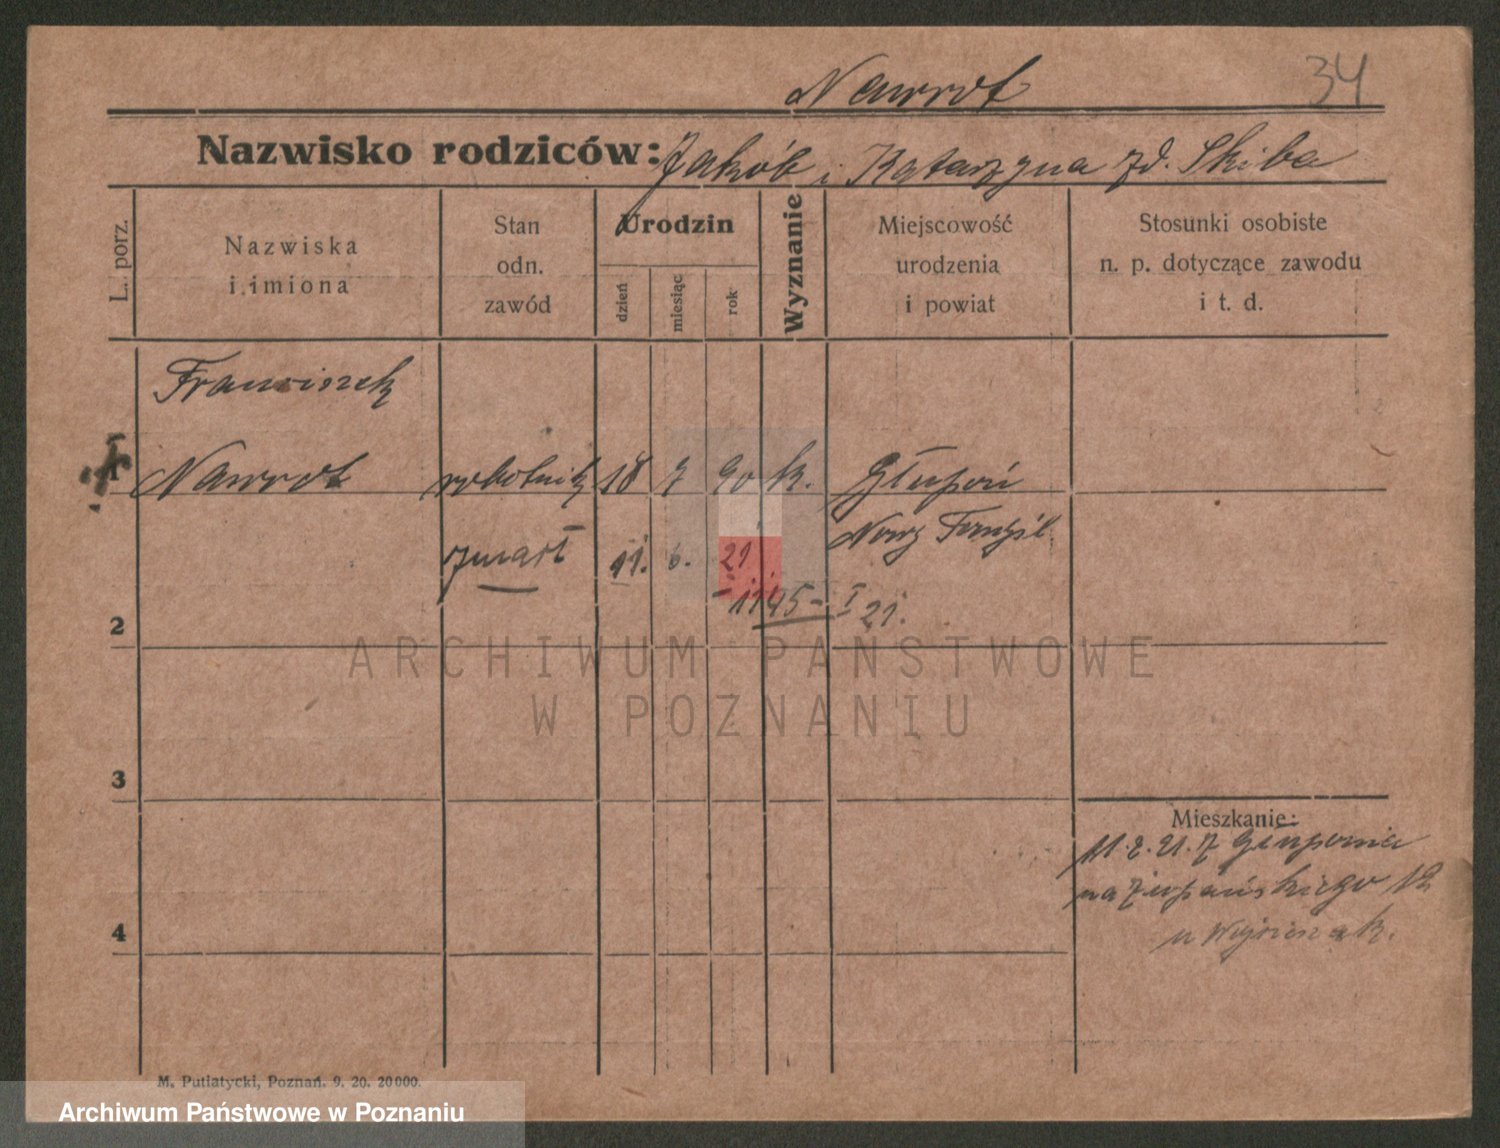 Nawrot
34
Nazwisko rodziców: Jakób i Katarzyna zd. Skiba
L. porz.
Nazwiska
i imiona
Stan
odn.
zawód
Urodzin
dzień
miesiąc
rok
Wyznanie
Miejscowość
urodzenia
i powiat
Stosunki osobiste
n. p. dotyczące zawodu
i t. d.
Franciszek
1 Nawrot robotnik 18 7 90 k. Głupoń
Nowy Tomyśl
zmarł 11. 6. 21
1145 - I 21.
2
ARCHIWUM PAŃSTWOWE
W POZNANIU
3
Mieszkanie:
11.2.21. z Głuponia
na Żupańskiego 12
u Wojcieszak.
4
M. Putiatycki, Poznań. 9. 20. 20000.
Archiwum Państwowe w Poznaniu